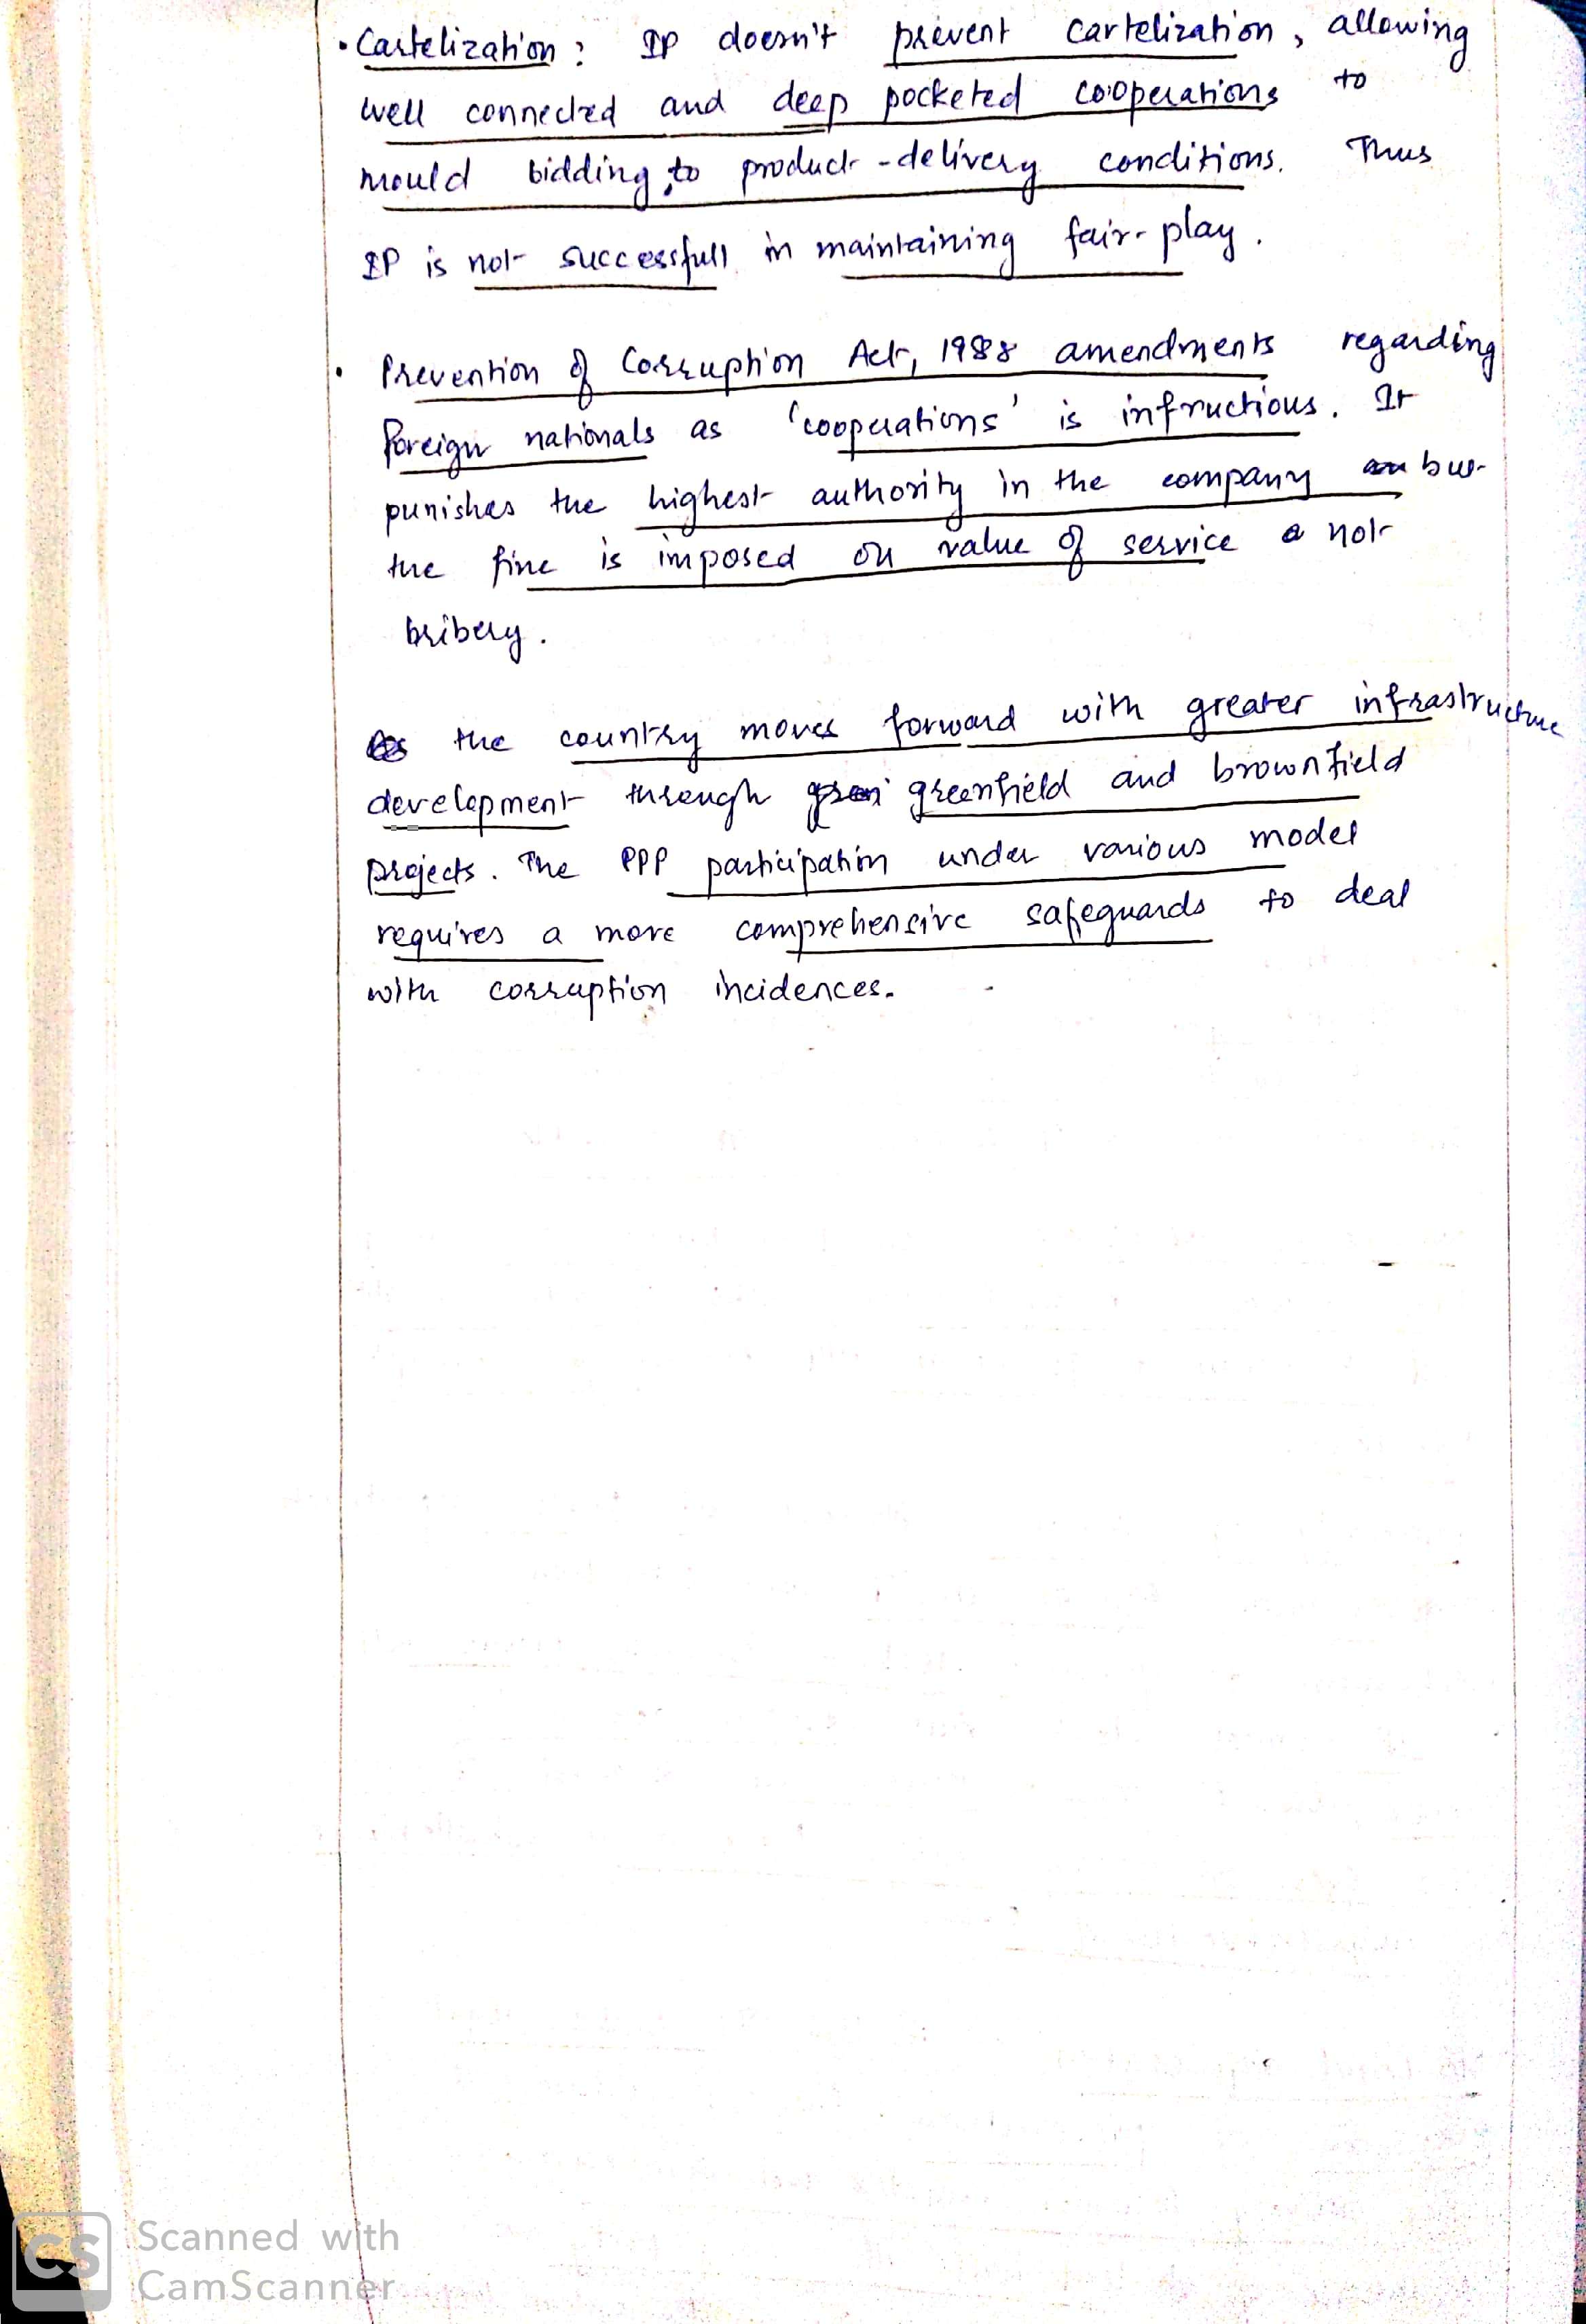 • Cartelization : IP doesn't prevent cartelization, allowing
well connected and deep pocketed cooperations to
mould bidding, to product-delivery conditions. Thus
IP is not successfull in maintaining fair-play.
• Prevention of Corruption Act, 1988 amendments regarding
foreign nationals as 'cooperations' is infructious. It
punishes the highest authority in the company but
the fine is imposed on value of service not
bribery.
As the country moves forward with greater infrastructure
development through greenfield and brownfield
projects. The PPP participation under various model
requires a more comprehensive safeguards to deal
with corruption incidences.
CS Scanned with
CamScanner